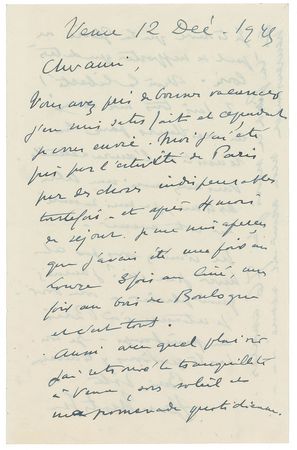 Vence 12 Déc. 1945
Cher ami,
Vous avez pris de bonnes vacances
j'en suis satisfait et cependant
je vous envie. Moi j'ai été
pris par l'activité de Paris
par des choses indispensables
toutefois - et après 4 mois
de séjour. je me suis aperçu
que j'avais été une fois au
3 fois au ciné, une
fois au bois de Boulogne
et c'est tout.
Aussi avec quel plaisir
j'ai retrouvé la tranquillité
à Vence, son soleil et
ma promenade quotidienne.